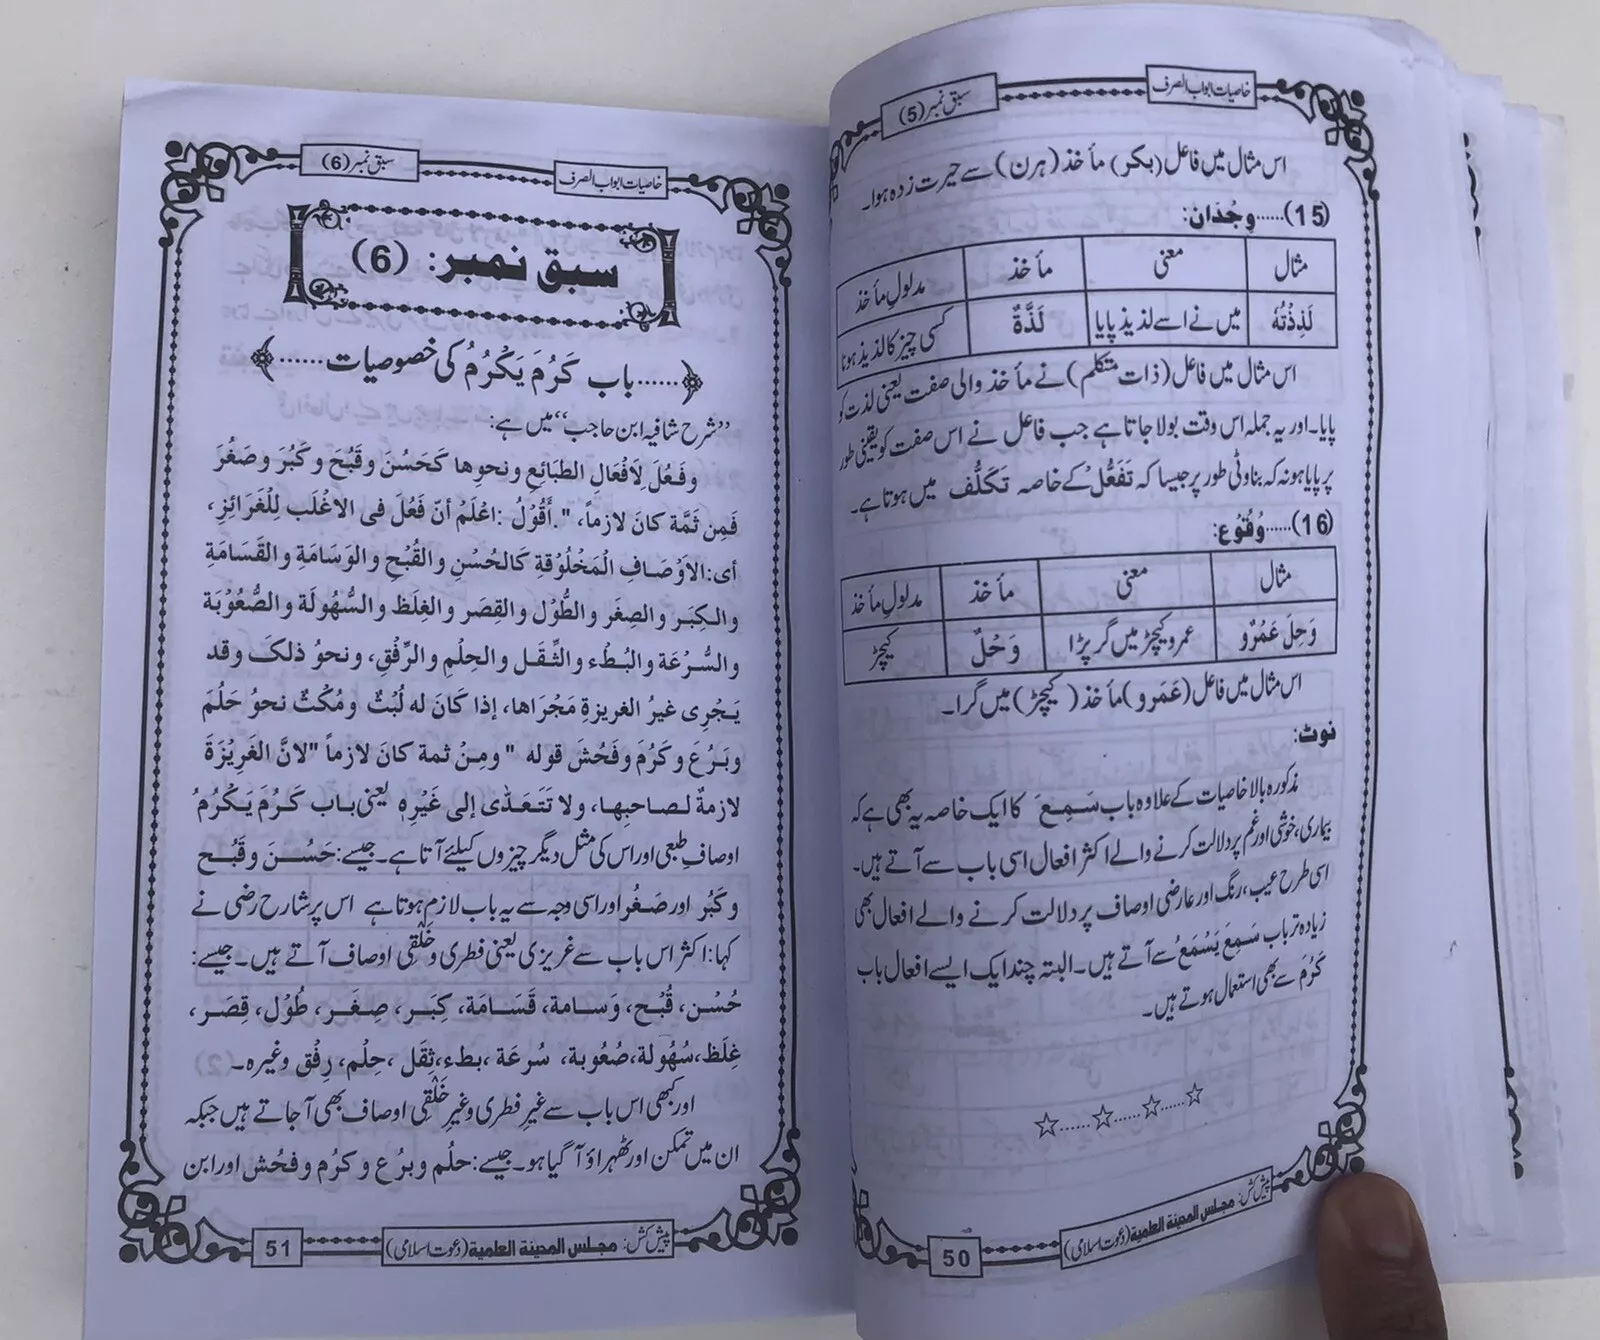 خاصیات ابواب الصرف
سبق نمبر (5)
اس مثال میں فاعل (بکر) مأخذ (ہرن) سے حیرت زدہ ہوا۔
(15)......وِجْدَان:
مثال معنی مأخذ مدلولِ مأخذ
لَذِذْتُهٗ میں نے اسے لذیذ پایا لَذَّةٌ کسی چیز کا لذیذ ہونا
اس مثال میں فاعل (ذات متکلم) نے مأخذ والی صفت یعنی لذت کو
پایا۔ اور یہ جملہ اس وقت بولا جاتا ہے جب فاعل نے اس صفت کو یقینی طور
پر پایا ہو نہ کہ بناوٹی طور پر جیسا کہ تَفَعُّلْ کے خاصہ تَكَلُّف میں ہوتا ہے۔
(16)......وُقُوْع:
مثال معنی مأخذ مدلولِ مأخذ
وَحِلَ عَمْرٌو عمرو کیچڑ میں گر پڑا وَحْلٌ کیچڑ
اس مثال میں فاعل (عَمَرو) مأخذ (کیچڑ) میں گرا۔
نوٹ:
مذکورہ بالا خاصیات کے علاوہ باب سَمِعَ کا ایک خاصہ یہ بھی ہے کہ
بیماری، خوشی اور غم پر دلالت کرنے والے اکثر افعال اسی باب سے آتے ہیں۔
اسی طرح عیب، رنگ اور عارضی اوصاف پر دلالت کرنے والے افعال بھی
زیادہ تر باب سَمِعَ يَسْمَعُ سے آتے ہیں۔ البتہ چند ایک ایسے افعال باب
کَرُمَ سے بھی استعمال ہوتے ہیں۔
☆......☆......☆......☆
پیش کش: مجلس المدينة العلمية (دعوت اسلامی)
50
خاصیات ابواب الصرف
سبق نمبر (6)
سبق نمبر: (6)
......باب كَرُمَ يَكْرُمُ کی خصوصیات......
”شرح شافیہ ابن حاجب“ میں ہے:
وفَعُلَ لِاَفْعَالِ الطبائِعِ ونحوِها كَحَسُنَ وقَبُحَ وكَبُرَ وصَغُرَ
فَمِن ثَمَّة كانَ لازماً، ". أَقُوْلُ: اعْلَمْ أنّ فَعُلَ فى الاغْلَب لِلْغَرائِزِ،
أى: الاَوْصَافِ الْمَخْلُوْقةِ كَالحُسْنِ والقُبْحِ والوَسَامَةِ والقَسَامَةِ
والكِبَر والصِغَر والطُّوْل والقِصَر والغِلَظ والسُّهُولَة والصُّعُوْبَة
والسُّرْعَة والبُطْء والثِّقَل والحِلْمِ والرِّفْقِ، ونحوُ ذلكَ وقد
يَجْرِى غيرُ الغريزةِ مَجْرَاها، إذا كَانَ له لُبْثٌ ومُكْثٌ نحوُ حَلُمَ
وبَرُعَ وكَرُمَ وفَحُشَ قوله " ومِنْ ثمة كانَ لازماً "لانَّ الغَرِيْزَةَ
لازمةٌ لصاحبِها، ولا تَتَعَدّى إلى غَيْرِهٖ یعنی باب كَرُمَ يَكْرُمُ
اوصافِ طبعی اور اس کی مثل دیگر چیزوں کیلئے آتا ہے۔ جیسے: حَسُنَ وقَبُح
وكَبُر اور صَغُر اور اسی وجہ سے یہ باب لازم ہوتا ہے اس پر شارح رضی نے
کہا: اکثر اس باب سے غریزی یعنی فطری و خَلْقی اوصاف آتے ہیں۔ جیسے:
حُسْن، قُبْح، وَسامة، قَسَامَة، كِبَر، صِغَر، طُوْل، قِصَر،
غِلَظ، سُهُولة، صُعُوبة، سُرعَة، بطء، ثِقَل، حِلْم، رِفْق وغیرہ۔
اور کبھی اس باب سے غیرِ فطری و غیرِ خَلْقی اوصاف بھی آجاتے ہیں جبکہ
ان میں تمکن اور ٹھہراؤ آگیا ہو۔ جیسے: حلُم وبرُع وكرُم وفحُش اور ابن
پیش کش: مجلس المدينة العلمية (دعوت اسلامی)
51